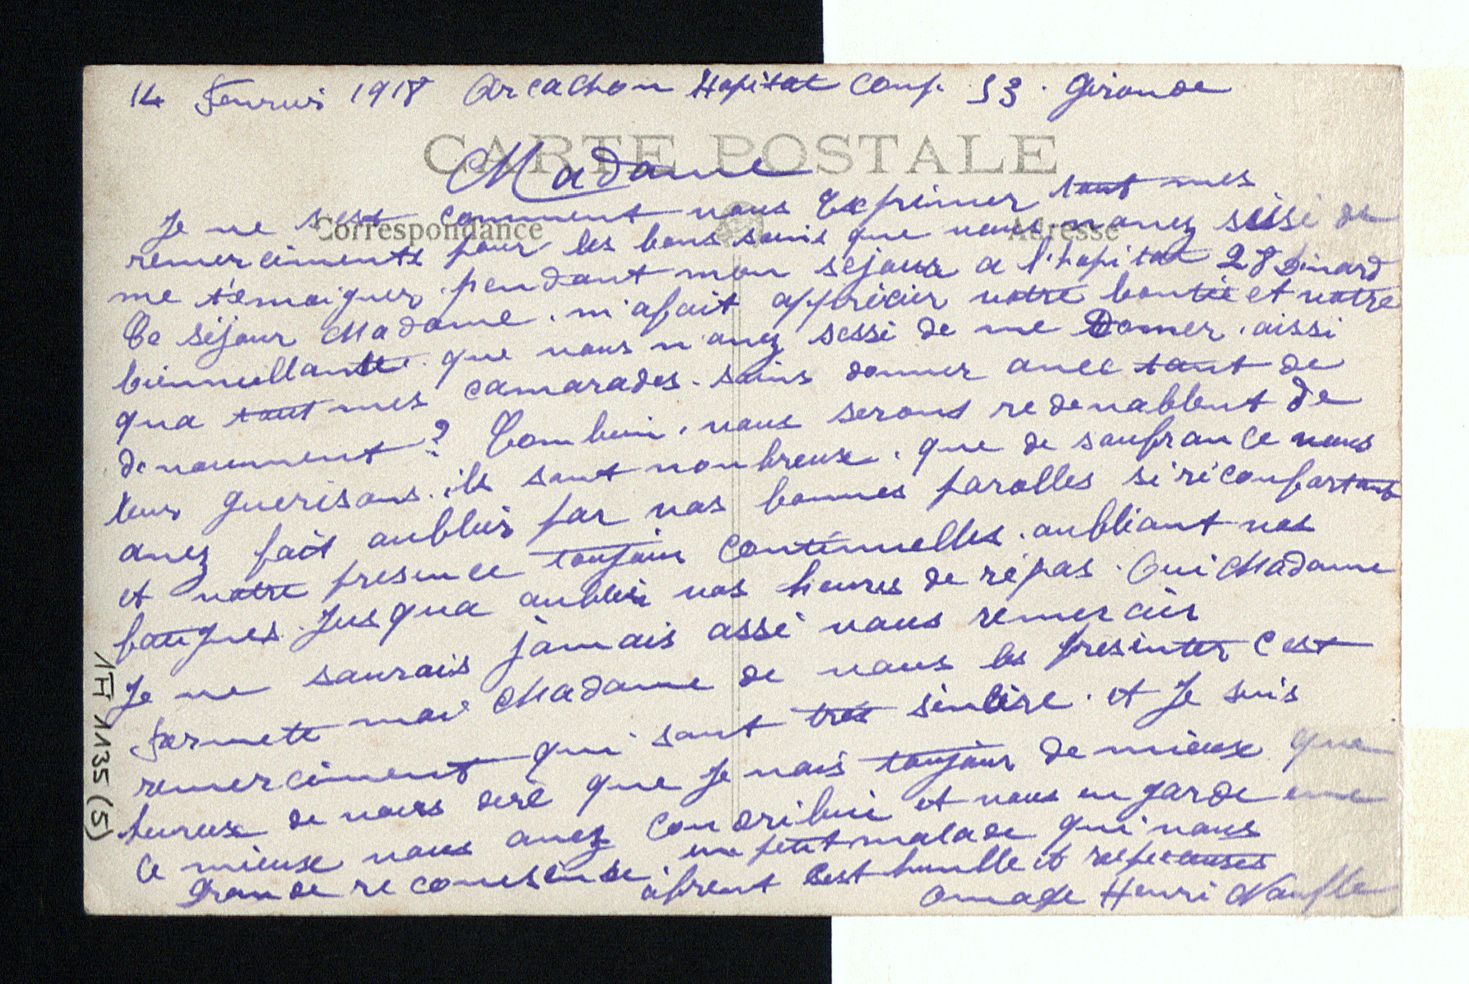 14 Fevrier 1918 Arcachon Hopital Comp. 53. Gironde
CARTE POSTALE
Madame
Correspondance
Adresse
Je ne sest comment vous Exprimer tout mes
remerciments pour les bons soins que vous navez séssé de
me témoigner pendant mon séjour a l'hopital 28 Dinard
Ce séjour Madame. m'afait apprécier votre bontée et votre
bienveillante. que vous n'avez sessé de me Donner. aissi
qua tout mes camarades. soins donner avec tant de
devoument ? Combien. vous seront redevablent de
leur guerisons. ils sont nonbreux. que de soufrance vous
avez fait oublier par vos bonnes parolles si réconfortant
et votre presence toujour continuelles. oubliant vos
fatigues. Jusqua oublier vos heures de répas. Oui Madame
Je ne saurais jamais assé vous remercier
Permette moi Madame de vous les presenter c'est
remerciment qui sont très sincère. et Je suis
heureux de vous dire que Je vais toujour de mieux que
Ce mieux vous avez contribué et vous en garde une
Grande reconesense. un petit malade qui vous
ofrent sest humble et respectuuses
omage Henri
1 Fi 1135 (5)